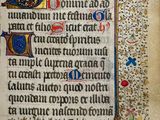 Domine ad ad
iuuandum me festina Gla
pa tri et filio Sicut erat
Veni creator spiritus
mentes tuorum uisi
ta imple superna gratia q
tu creasti pectora Memento
salutis auctor quod nostri
quondam corporis ex illiba
ta uirgine nascendo forma